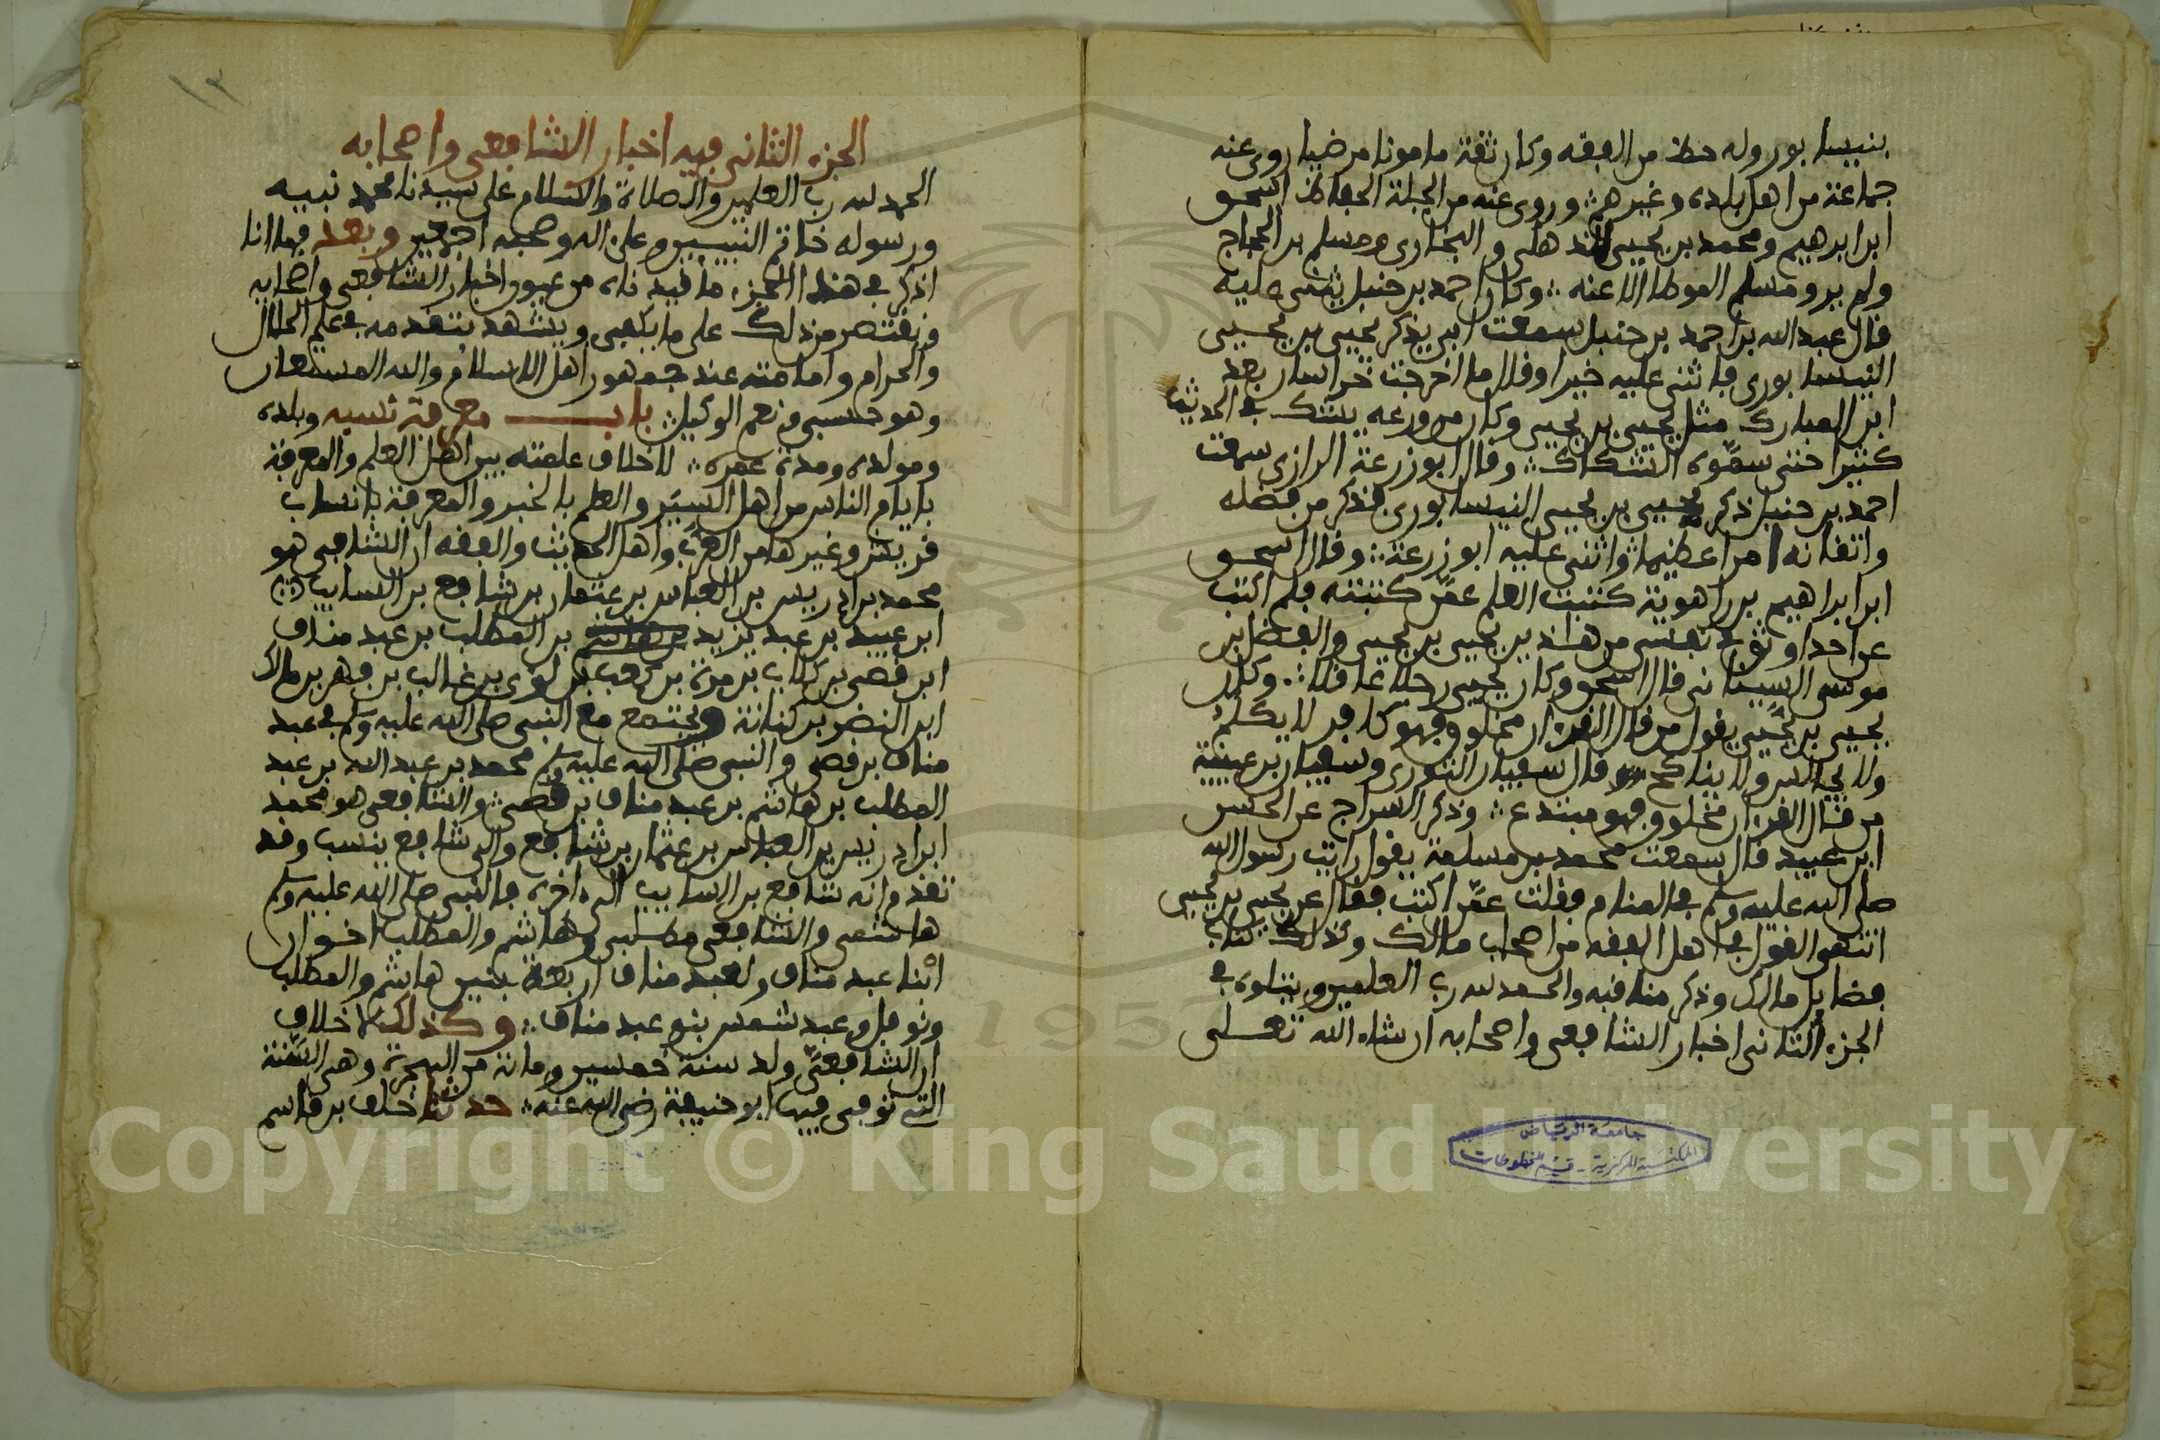 بنيسابور وله حظ من الفقه وكان ثقة مامونا مرضيا روى عنه
جماعة من اهل بلده وغيرهم وروى عنه من الجلة الحفاظ اسحق
ابن ابرهيم ومحمد بن يحيى الذهلي والبخاري ومسلم بن الحجاج
ولم يرو مسلم الموطا الا عنه وكان احمد بن حنبل يثنى عليه
قال عبد الله بن احمد بن حنبل سمعت ابي يذكر يحيى بن يحيى
النيسابوري فاثنى عليه خيرا وقال ما اخرجت خراسان بعد
ابن المبارك مثل يحيى بن يحيى وكان من ورعه يشك في الحديث
كثيرا حتى سموه الشكاك وقال ابو زرعة الرازي سمعت
احمد بن حنبل ذكر يحيى بن يحيى النيسابوري فذكر من فضله
واتقانه امرا عظيما واثنى عليه ابو زرعة وقال اسحق
ابن ابراهيم بن راهوية كتبت العلم عمن كتبته فلم اكتب
عن احد اوثق في نفسي من هاذين يحيى بن يحيى والفضل بن
موسى السيناني قال اسحق وكان يحيى رجلا عاقلا وكان
يحيى بن يحيى يقول من قال القرءان مخلوق فهو كافر لا يكلم
ولا يجالس ولا يناكح قال سفيان الثوري وسفيان بن عيينة
من قال القرءان مخلوق فهو مبتدع وذكر السراج عن الحسن
ابن عبيد قال سمعت محمد بن مسلمة يقول رايت رسول الله
صلى الله عليه وسلم في المنام فقلت عمن اكتب فقال عن يحيى بن يحيى
انتهى القول في اهل الفقه من اصحاب مالك وبذلك كتاب
فضايل مالك وذكر مناقبه والحمد لله رب العلمين ويتلوه في
الجزء الثاني اخبار الشافعي واصحابه ان شاء الله تعلى
جامعة الرياض
المكتبة المركزية - قسم المخطوطات
١٣
الجزء الثاني فيه اخبار الشافعي واصحابه
الحمد لله رب العلمين والصلاة والسلام على سيدنا محمد نبيه
ورسوله خاتم النبيين وعلى اله وصحبه اجمعين وبعد فها انا
اذكر في هذا الجزء ما قيدناه من عيون اخبار الشافعي واصحابه
ونقتصر من ذلك على ما يكفي ويشهد بتقدمه في علم الحلال
والحرام وامامته عند جمهور اهل الاسلام والله المستعان
وهو حسبي ونعم الوكيل باب معرفة نسبه وبلده
ومولده ومدة عمره لا خلاف علمته بين اهل العلم والمعرفة
بايام الناس من اهل السير والعلم بالخبر والمعرفة بانساب
قريش وغيرها من العرب واهل الحديث والفقه ان الشافعي هو
محمد بن ادريس بن العباس بن عثمان بن شافع بن السايب
ابن عبيد بن عبد يزيد بن هاشم بن المطلب بن عبد مناف
ابن قصي بن كلاب بن مرة بن كعب بن لوى بن غالب بن فهر بن مالك
ابن النضر بن كنانة ويجتمع مع النبي صلى الله عليه وسلم في عبد
مناف بن قصي والنبي صلى الله عليه وسلم محمد بن عبد الله بن عبد
المطلب بن هاشم بن عبد مناف بن قصي والشافعي هو محمد
ابن ادريس بن العباس بن عثمان بن شافع والى شافع ينسب وقد
تقدم انه شافع بن السايب الى اخره فالنبي صلى الله عليه وسلم
هاشمي والشافعي مطلبي وهاشم والمطلب اخوان
ابنا عبد مناف ولعبد مناف اربعة بنين هاشم والمطلب
ونوفل وعبد شمس بنو عبد مناف وكذلك لا خلاف
ان الشافعي ولد سنة خمسين ومائة من الهجرة وهي السنة
التي توفي فيها ابو حنيفة رضي الله عنه حدثنا خلف بن قاسم
Copyright © King Saud University
1957